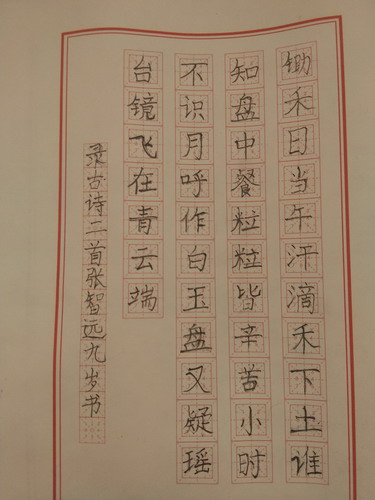 锄禾日当午汗滴禾下土谁
知盘中餐粒粒皆辛苦小时
不识月呼作白玉盘又疑瑶
台镜飞在青云端
录古诗二首张智远九岁书